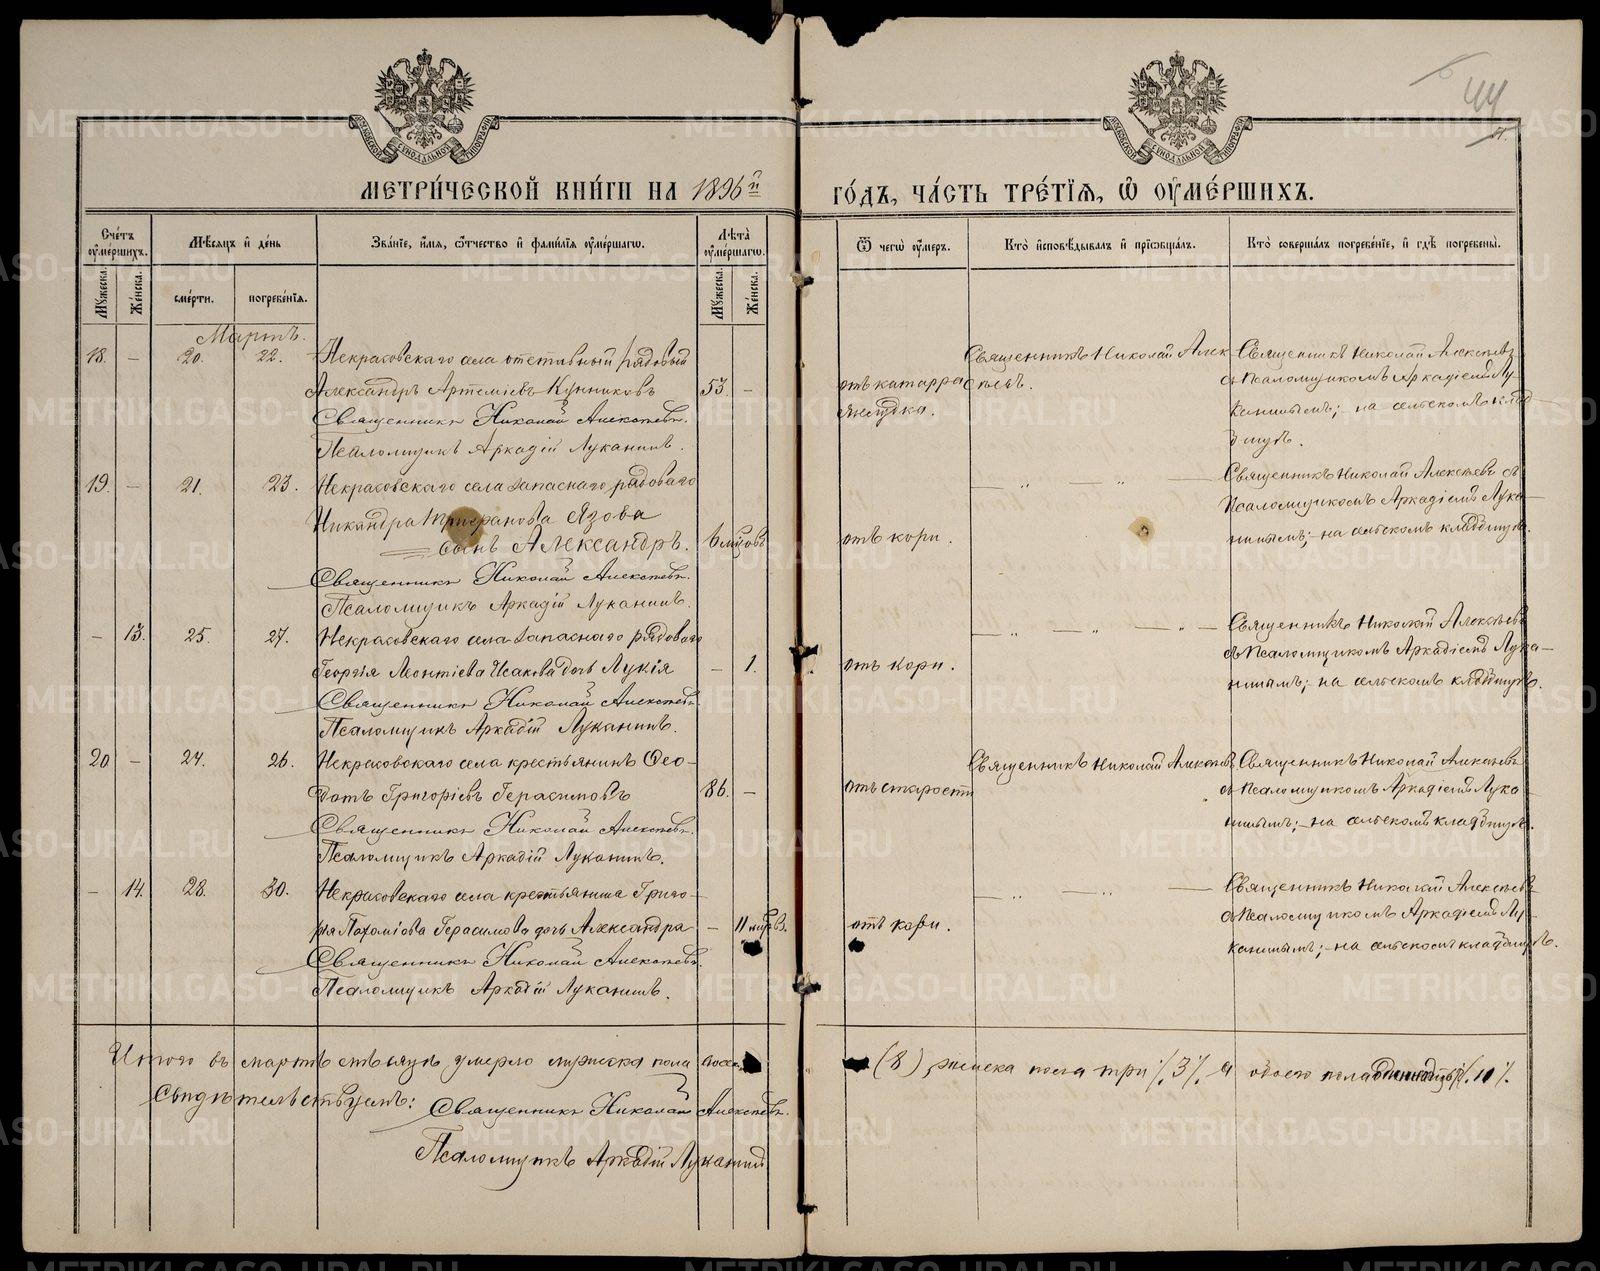 44
МЕТРИ́ЧЕСКОЙ КНИ́ГИ НА 1896й ГО́ДЪ, ЧА́СТЬ ТРЕ́ТІЯ, Ѿ ОУМЕ́РШИХЪ.
Сче́тъ оуме́ршихъ.
Мѣсяцъ и де́нь
Зва́ніе, и́мя, о́тчество и фами́лія оуме́ршагѡ.
Лѣта̀ оуме́ршагѡ.
Ѿ чегѡ̀ оу́меръ.
Кто̀ исповѣ́дывалъ и прїѡбща́лъ.
Кто̀ соверша́лъ погребе́ніе, и гдѣ̀ погребены̀.
Мꙋжеска.
Же́нска.
сме́рти.
погребе́нія.
Мꙋжеска.
Же́нска.
Мартъ.
18. — 20. 22. Некрасовскаго села отставной рядовый
Александръ Артеміевъ Кунниковъ 53. —
Священникъ Николай Алексѣевъ.
Псаломщикъ Аркадій Луканинъ.
отъ катарра
желудка.
Священникъ Николай Алек-
сѣевъ.
Священникъ Николай Алексѣевъ
съ Псаломщикомъ Аркадіемъ Лу-
канинымъ; на сельскомъ клад-
бищѣ.
19. — 21. 23. Некрасовскаго села запаснаго рядоваго
Никандра Язова
сынъ Александръ. 6 мцовъ
Священникъ Николай Алексѣевъ.
Псаломщикъ Аркадій Луканинъ.
отъ кори.
— „ — „ —
Священникъ Николай Алексѣевъ съ
Псаломщикомъ Аркадіемъ Лука-
нинымъ; на сельскомъ кладбищѣ.
— 13. 25. 27. Некрасовскаго села запаснаго рядоваго
Георгія Леонтіева Исакова дочь Лукія — 1.
Священникъ Николай Алексѣевъ.
Псаломщикъ Аркадій Луканинъ.
отъ кори.
— „ — „ — „ —
Священникъ Николай Алексѣевъ
съ Псаломщикомъ Аркадіемъ Лука-
нинымъ; на сельскомъ кладбищѣ.
20 — 24. 26. Некрасовскаго села крестьянинъ Ѳео-
дотъ Григоріевъ Герасимовъ 86. —
Священникъ Николай Алексѣевъ.
Псаломщикъ Аркадій Луканинъ.
отъ старости
Священникъ Николай Алексѣевъ
Священникъ Николай Алексѣевъ
съ Псаломщикомъ Аркадіемъ Лука-
нинымъ; на сельскомъ кладбищѣ.
— 14. 28. 30. Некрасовскаго села крестьянина Григо-
рія Пахоміова Герасимова дочь Александра — 11 мцовъ.
Священникъ Николай Алексѣевъ.
Псаломщикъ Аркадій Луканинъ.
отъ кори.
— „ — „ —
Священникъ Николай Алексѣевъ
съ Псаломщикомъ Аркадіемъ Лу-
канинымъ; на сельскомъ кладбищѣ.
Итого въ мартѣ мѣсяцѣ умерло мужеска пола (8), женска пола три /.3/. а обоего пола одиннадцать /.11/.
Свидѣтельствуемъ: Священникъ Николай Алексѣевъ.
Псаломщикъ Аркадій Луканинъ
METRIKI.GASO-URAL.RU